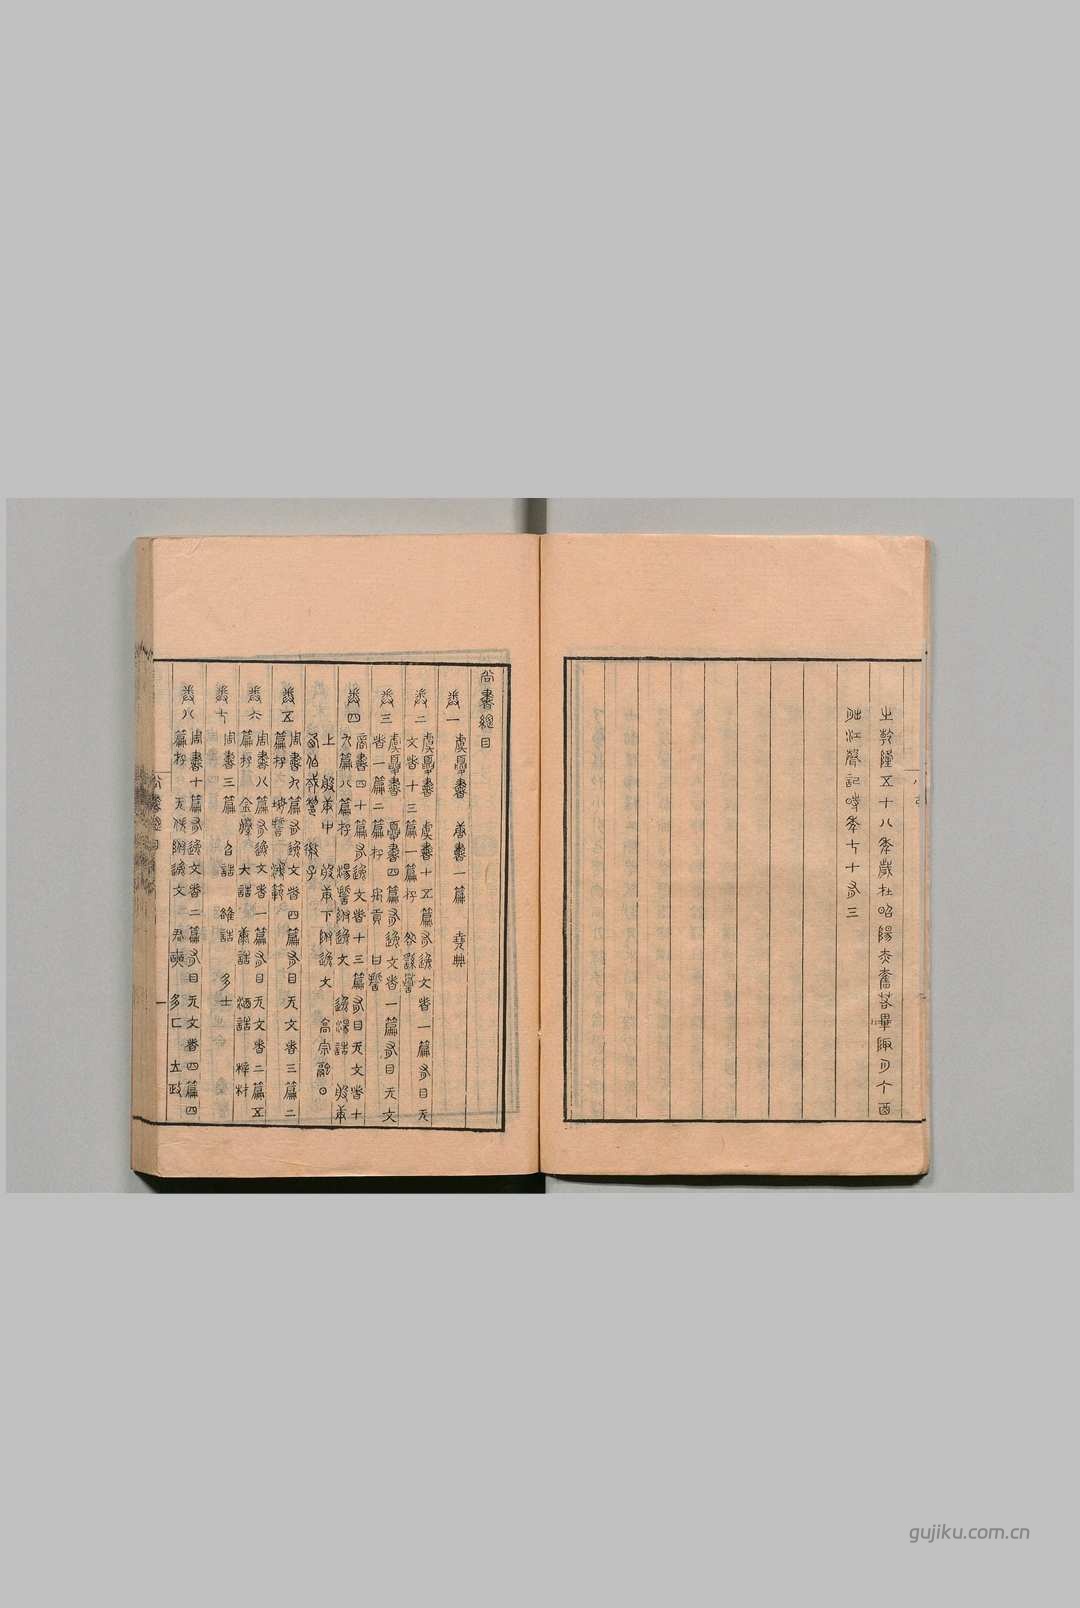 之乾隆五十八年歲在昭陽赤奮若畢陬月丁酉
朏江聲記時年七十有三
尚書總目
卷一 虞夏書 唐書一篇 堯典
卷二 虞夏書 虞書十五篇有逸文者一篇有目无
文者十三篇一篇存 咎繇謨
卷三 虞夏書 夏書四篇有逸文者一篇有目无文
者一篇二篇存 禹貢 甘誓
卷四 商書四十篇有逸文者十三篇有目无文者十
九篇八篇存 湯誓附逸文 逸湯誥 般庚
上 般庚中 般庚下附逸文 高宗融日
西伯戡黎 微子
卷五 周書九篇有逸文者四篇有目无文者三篇二
篇存 坶誓 鴻範
卷六 周書八篇有逸文者一篇有目无文者二篇五
篇存 金縢 大誥 康誥 酒誥 梓材
卷七 周書三篇 召誥 雒誥 多士
卷八 周書十篇有逸文者二篇有目无文者四篇四
篇存 无佚附逸文 君奭 多方 立政
尚書總目 一
gujiku.com.cn